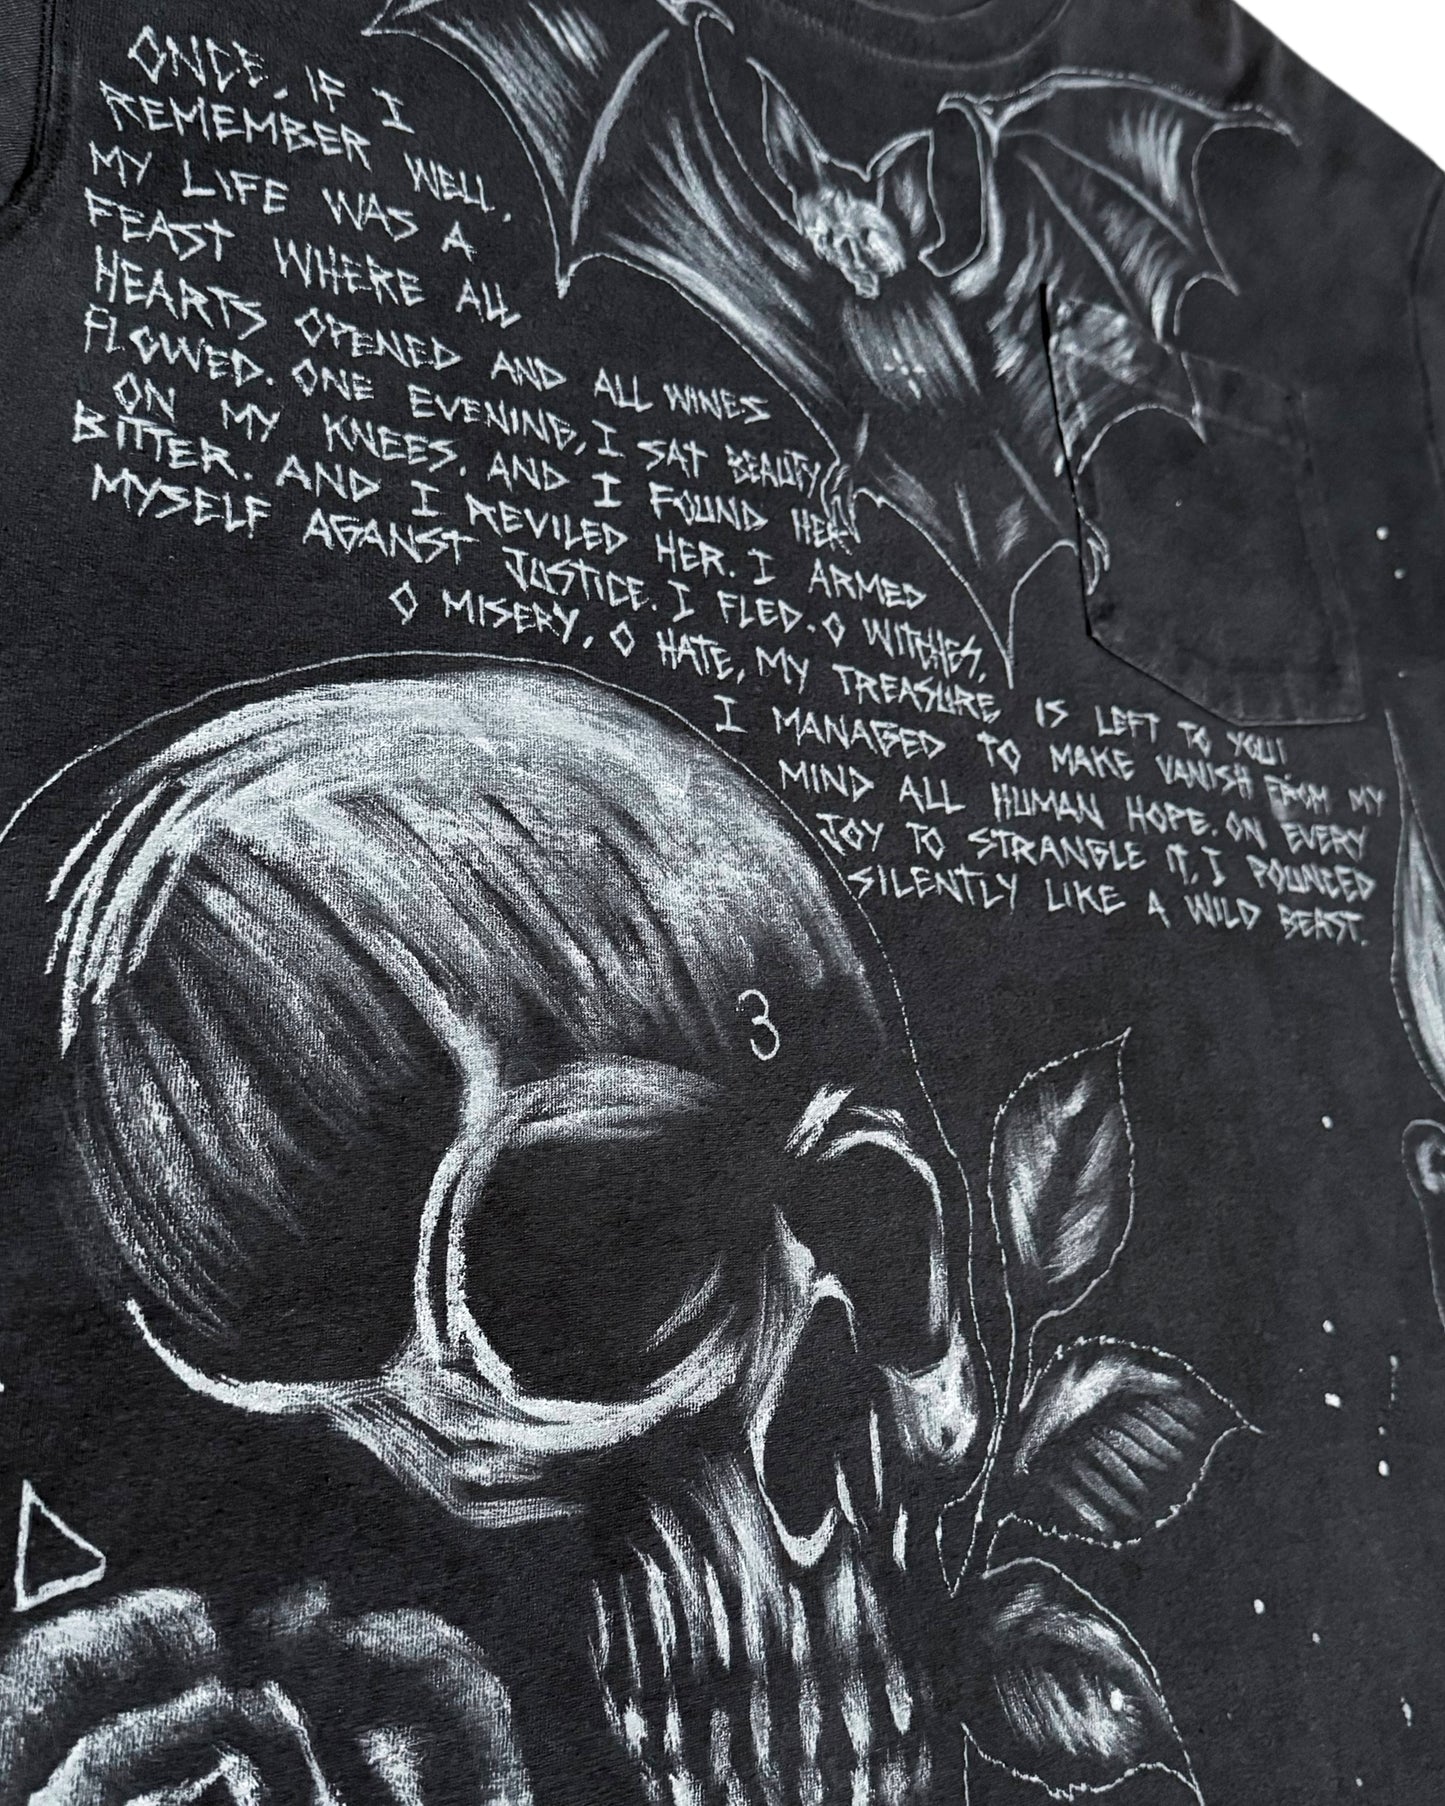 ONCE, IF I
REMEMBER WELL,
MY LIFE WAS A
FEAST WHERE ALL
HEARTS OPENED AND ALL WINES
FLOWED. ONE EVENING, I SAT BEAUTY
ON MY KNEES. AND I FOUND HER
BITTER. AND I REVILED HER. I ARMED
MYSELF AGANST JUSTICE. I FLED. O WITCHES,
O MISERY, O HATE, MY TREASURE IS LEFT TO YOU!
I MANAGED TO MAKE VANISH FROM MY
MIND ALL HUMAN HOPE. ON EVERY
JOY TO STRANGLE IT, I POUNCED
SILENTLY LIKE A WILD BEAST.
3